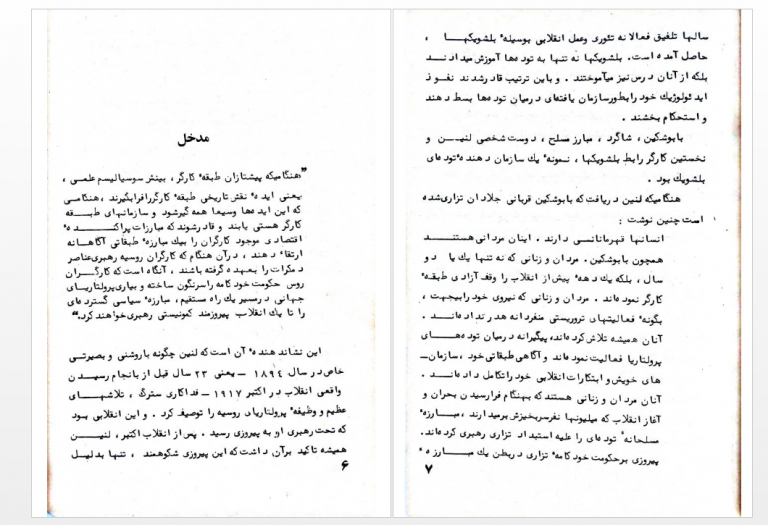 مدخل
"هنگامیکه پیشتازان طبقهٔ کارگر ، بینش سوسیالیسم علمی ،
یعنی ایدهٔ نقش تاریخی طبقهٔ کارگر را فرابگیرند ، هنگامی
که این ایده‌ها وسیعا همه گیر شود و سازمانهای طبقه
کارگر هستی یابند و قادر شوند که مبارزات پراکندهٔ
اقتصادی موجود کارگران را بیك مبارزهٔ طبقاتی آگاهانه
ارتقاء دهند ، در آن هنگام که کارگران روسیه رهبری عناصر
دمکرات را بعهده گرفته باشند ، آنگاه است که کارگران
روس حکومت خود کامه را سرنگون ساخته و بیاری پرولتاریای
جهانی ، در مسیر یك راه مستقیم ، مبارزهٔ سیاسی گسترده‌ای
را تا یك انقلاب پیروزمند کمونیستی رهبری خواهند کرد."
این نشاندهندهٔ آن است که لنین چگونه با روشنی و بصیرتی
خاص در سال ۱۸۹۴ ــ یعنی ۲۳ سال قبل از بانجام رسیدن
واقعی انقلاب در اکتبر ۱۹۱۷ ــ فداکاری سترگ ، تلاشهای
عظیم و وظیفهٔ پرولتاریای روسیه را توصیف کرد . و این انقلابی بود
که تحت رهبری او به پیروزی رسید . پس از انقلاب اکتبر ، لنین
همیشه تاکید بر آن داشت که این پیروزی شکوهمند ، تنها بدلیل
۶
سالها تلفیق فعالانه تئوری وعمل انقلابی بوسیلهٔ بلشویکها ،
حاصل آمده است. بلشویکها نه تنها به توده‌ها آموزش میدادند
بلکه از آنان درس نیز میآموختند . و باین ترتیب قادر شدند نفوذ
ایدئولوژیك خود را بطور سازمان یافته‌ای درمیان توده‌ها بسط دهند
و استحکام بخشند .
بابوشکین ، شاگرد ، مبارز مسلح ، دوست شخصی لنین و
نخستین کارگر رابط بلشویکها ، نمونهٔ یك سازمان دهندهٔ توده‌ای
بلشویك بود .
هنگامیکه لنین دریافت که بابوشکین قربانی جلادان تزاری شده
است چنین نوشت :
انسانها قهرمانانی دارند . اینان مردانی هستند
همچون بابوشکین . مردان و زنانی که نه تنها یك یا دو
سال ، بلکه یك دههٔ پیش از انقلاب را وقف آزادی طبقهٔ
کارگر نموده‌اند . مردان و زنانی که نیروی خود را بیجهت ،
بگونهٔ فعالیتهای تروریستی منفردانه هدر نداده‌اند .
آنان همیشه تلاش کرده‌اند، پیگیرانه درمیان توده‌های
پرولتاریا فعالیت نموده‌اند و آگاهی طبقاتی خود ، سازمان‌ــ
های خویش و ابتکارات انقلابی خود را تکامل داده‌اند .
آنان مردان و زنانی هستند که بهنگام فرارسیدن بحران و
آغاز انقلاب که میلیونها نفر سر بخیزش برمیدارند ، مبارزهٔ
مسلحانهٔ توده‌ای را علیه استبداد تزاری رهبری کرده‌اند.
پیروزی بر حکومت خود کامهٔ تزاری دربطن یك مبارزهٔ
۷